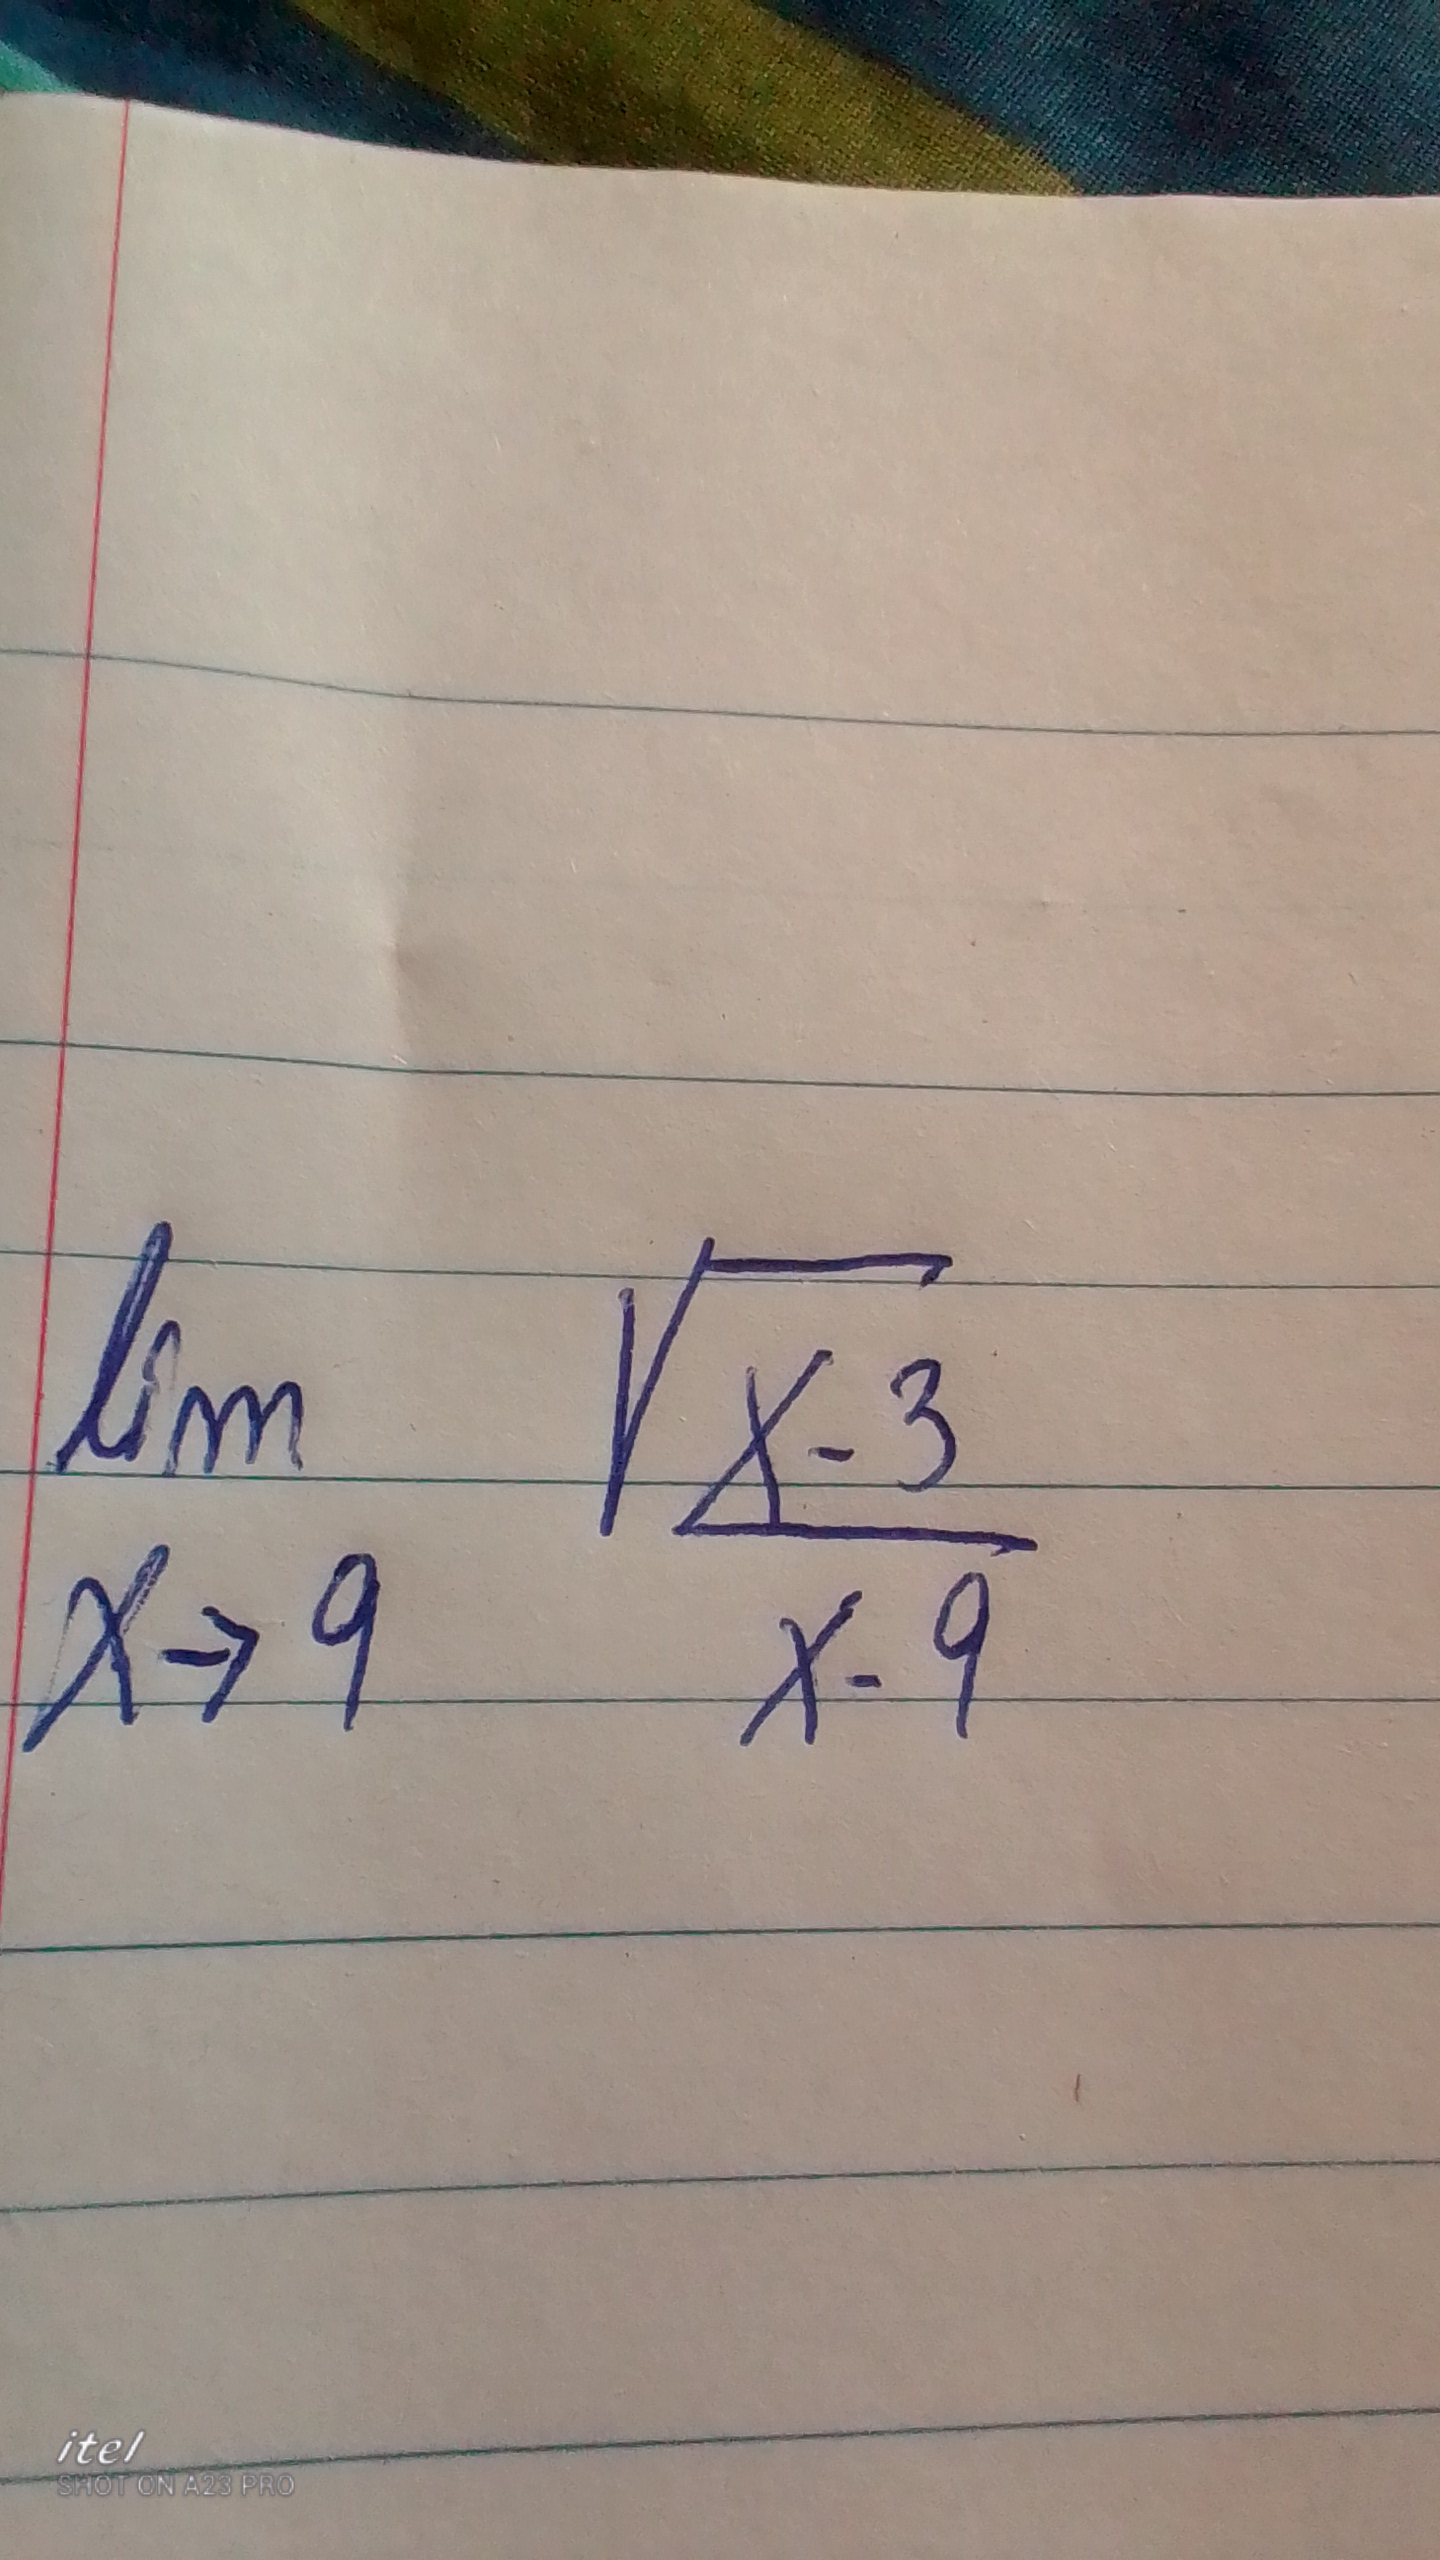 lim √x-3
x→9 x-9
itel
SHOT ON A23 PRO